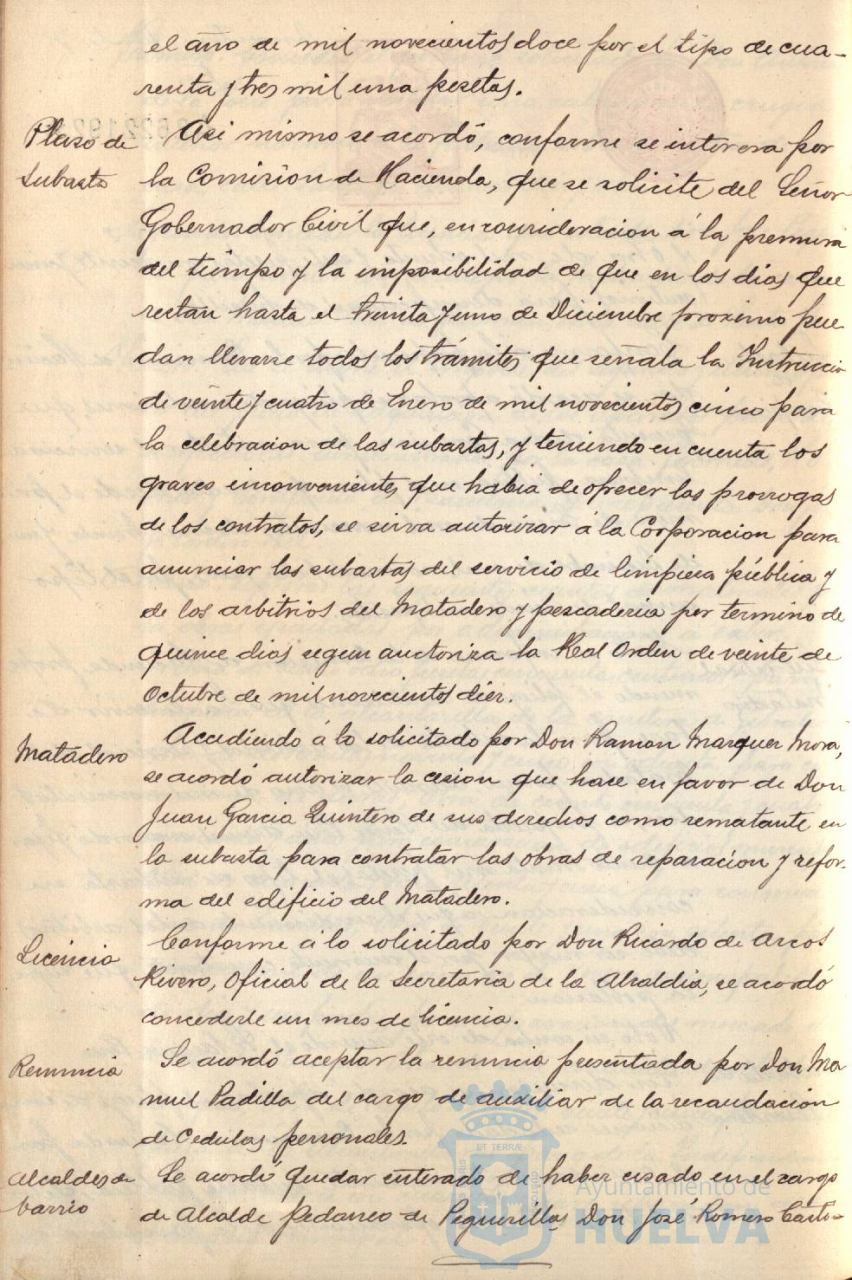 el año de mil novecientos doce por el tipo de cua-
renta y tres mil una pesetas.
Plazo de
subasta
Asi mismo se acordó, conforme se interesa por
la Comision de Hacienda, que se solicite del Señor
Gobernador Civil que, en consideracion á la premura
del tiempo y la imposibilidad de que en los dias que
restan hasta el treinta y uno de Diciembre proximo pue
dan llevarse todos los trámites que señala la Instruccion
de veinte y cuatro de Enero de mil novecientos cinco para
la celebracion de las subastas, y teniendo en cuenta los
graves inconvenientes que habia de ofrecer las prorrogas
de los contratos, se sirva autorizar á la Corporacion para
anunciar las subastas del servicio de limpieza pública y
de los arbitrios del Matadero y pescaderia por termino de
quince dias segun auctoriza la Real Orden de veinte de
Octubre de mil novecientos diez.
Matadero
Accediendo á lo solicitado por Don Ramon Marquez Mora,
se acordó autorizar la cesion que hace en favor de Don
Juan Garcia Quintero de sus derechos como rematante en
la subasta para contratar las obras de reparacion y refor-
ma del edificio del Matadero.
Licencia
Conforme á lo solicitado por Don Ricardo de Arcos
Rivero, Oficial de la Secretaria de la Alcaldia, se acordó
concederle un mes de licencia.
Renuncia
Se acordó aceptar la renuncia presentada por Don Ma
nuel Padilla del cargo de auxiliar de la recaudacion
de Cedulas personales.
Alcaldes de
barrio
Se acordó quedar enterado de haber cesado en el cargo
de Alcalde pedaneo de Peguerillas Don José Romero Casto-
Ayuntamiento de
HUELVA